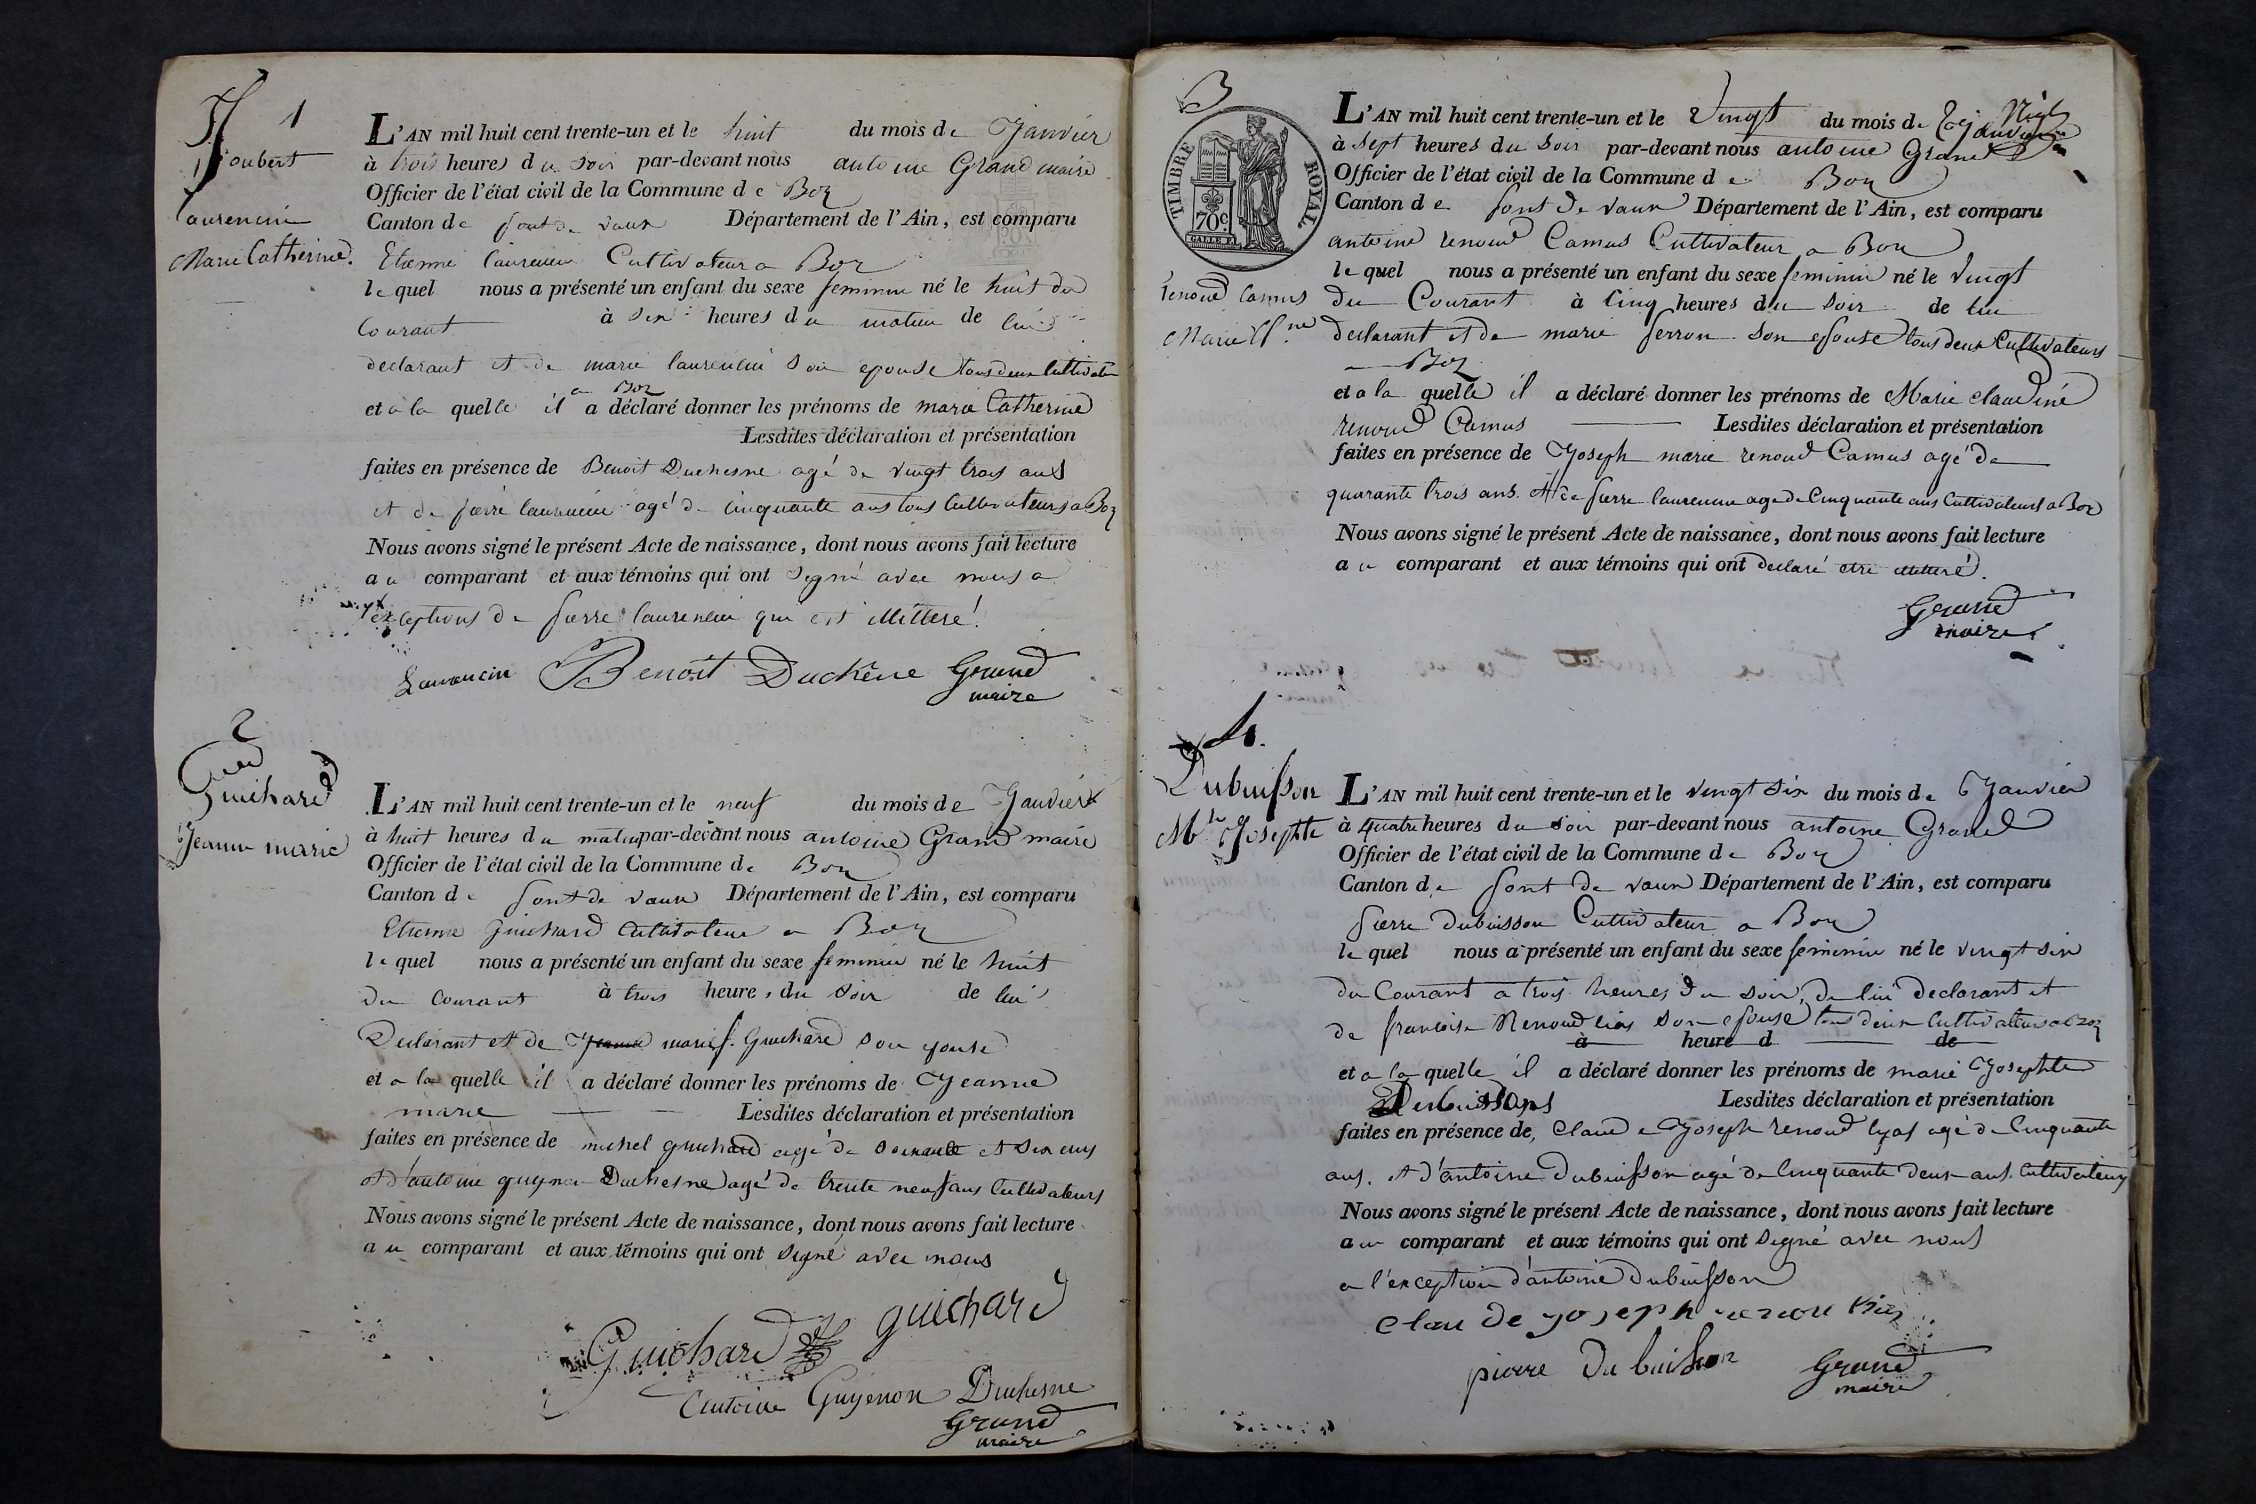 1
Joubert
laurencin
Marie Catherine.
L'AN mil huit cent trente-un et le huit du mois de Janvier
à trois heures du soir par-devant nous antoine Grand maire
Officier de l'état civil de la Commune de Boz
Canton de pont de vaux Département de l'Ain, est comparu
Etienne laurencin Cultivateur a Boz
lequel nous a présenté un enfant du sexe feminin né le huit du
Courant à six heures du matin de lui
declarant et de marie laurencin son epouse tous deux Cultivateurs
a Boz
et a la quelle il a déclaré donner les prénoms de marie Catherine
Lesdites déclaration et présentation
faites en présence de Benoit Duchesne agé de vingt trois ans
et de pierre laurencin agé de cinquante ans tous Cultivateurs a Boz
Nous avons signé le présent Acte de naissance, dont nous avons fait lecture
au comparant et aux témoins qui ont signé avec nous a
exceptions de pierre laurencin qui est illitteré
Laurancin Benoit Duchêne Grand
maire
2
Guichard
Jeanne marie
L'AN mil huit cent trente-un et le neuf du mois de Janvier
à huit heures du matin par-devant nous antoine Grand maire
Officier de l'état civil de la Commune de Boz
Canton de pont de vaux Département de l'Ain, est comparu
Etienne Guichard Cultivateur a Boz
lequel nous a présenté un enfant du sexe feminin né le huit
du Courant à trois heures du soir de lui
Declarant et de Jeanne marie f. Guichard son epouse
et a la quelle il a déclaré donner les prénoms de Jeanne
marie Lesdites déclaration et présentation
faites en présence de michel guichard agé de soixante et six ans
et d'antoine guyenon Duchesne agé de trente neuf ans Cultivateurs
Nous avons signé le présent Acte de naissance, dont nous avons fait lecture
au comparant et aux témoins qui ont signé avec nous
Guichard guichard
Antoine Guyenon Duchesne
Grand
maire
3
TIMBRE ROYAL
70c
renoud Camus
Marie Cl.ne
L'AN mil huit cent trente-un et le Vingt du mois de Janvier
à sept heures du soir par-devant nous antoine Grand
Officier de l'état civil de la Commune de Boz
Canton de pont de vaux Département de l'Ain, est comparu
antoine renoud Camus Cultivateur a Boz
lequel nous a présenté un enfant du sexe feminin né le Vingt
du Courant à Cinq heures du soir de lui
declarant et de marie ferron son epouse tous deux Cultivateurs
a Boz
et a la quelle il a déclaré donner les prénoms de Marie claudine
renoud Camus Lesdites déclaration et présentation
faites en présence de Joseph marie renoud Camus agé de
quarante trois ans. et de pierre laurencin age de Cinquante ans Cultivateurs a Boz
Nous avons signé le présent Acte de naissance, dont nous avons fait lecture
au comparant et aux témoins qui ont declaré etre illitteré.
Grand
maire
4.
Dubuisson
Mie Josephte
L'AN mil huit cent trente-un et le vingt six du mois de Janvier
à quatre heures du soir par-devant nous antoine Grand
Officier de l'état civil de la Commune de Boz
Canton de pont de vaux Département de l'Ain, est comparu
pierre Dubuisson Cultivateur a Boz
lequel nous a présenté un enfant du sexe feminin né le vingt six
du Courant a trois heures du soir, de lui declarant et
de francoise Renoud lias son epouse tous deux Cultivateurs a Boz
à heure d de
et a la quelle il a déclaré donner les prénoms de marie Josephte
Dubuissons Lesdites déclaration et présentation
faites en présence de, Claude Joseph renoud lyas agé de Cinquante
ans. et d'antoine Dubuisson agé de Cinquante deux ans. Cultivateurs
Nous avons signé le présent Acte de naissance, dont nous avons fait lecture
au comparant et aux témoins qui ont signé avec nous
a l'exception d'antoine Dubuisson
clau de joseph renou lias
pierre Du buison Grand
maire